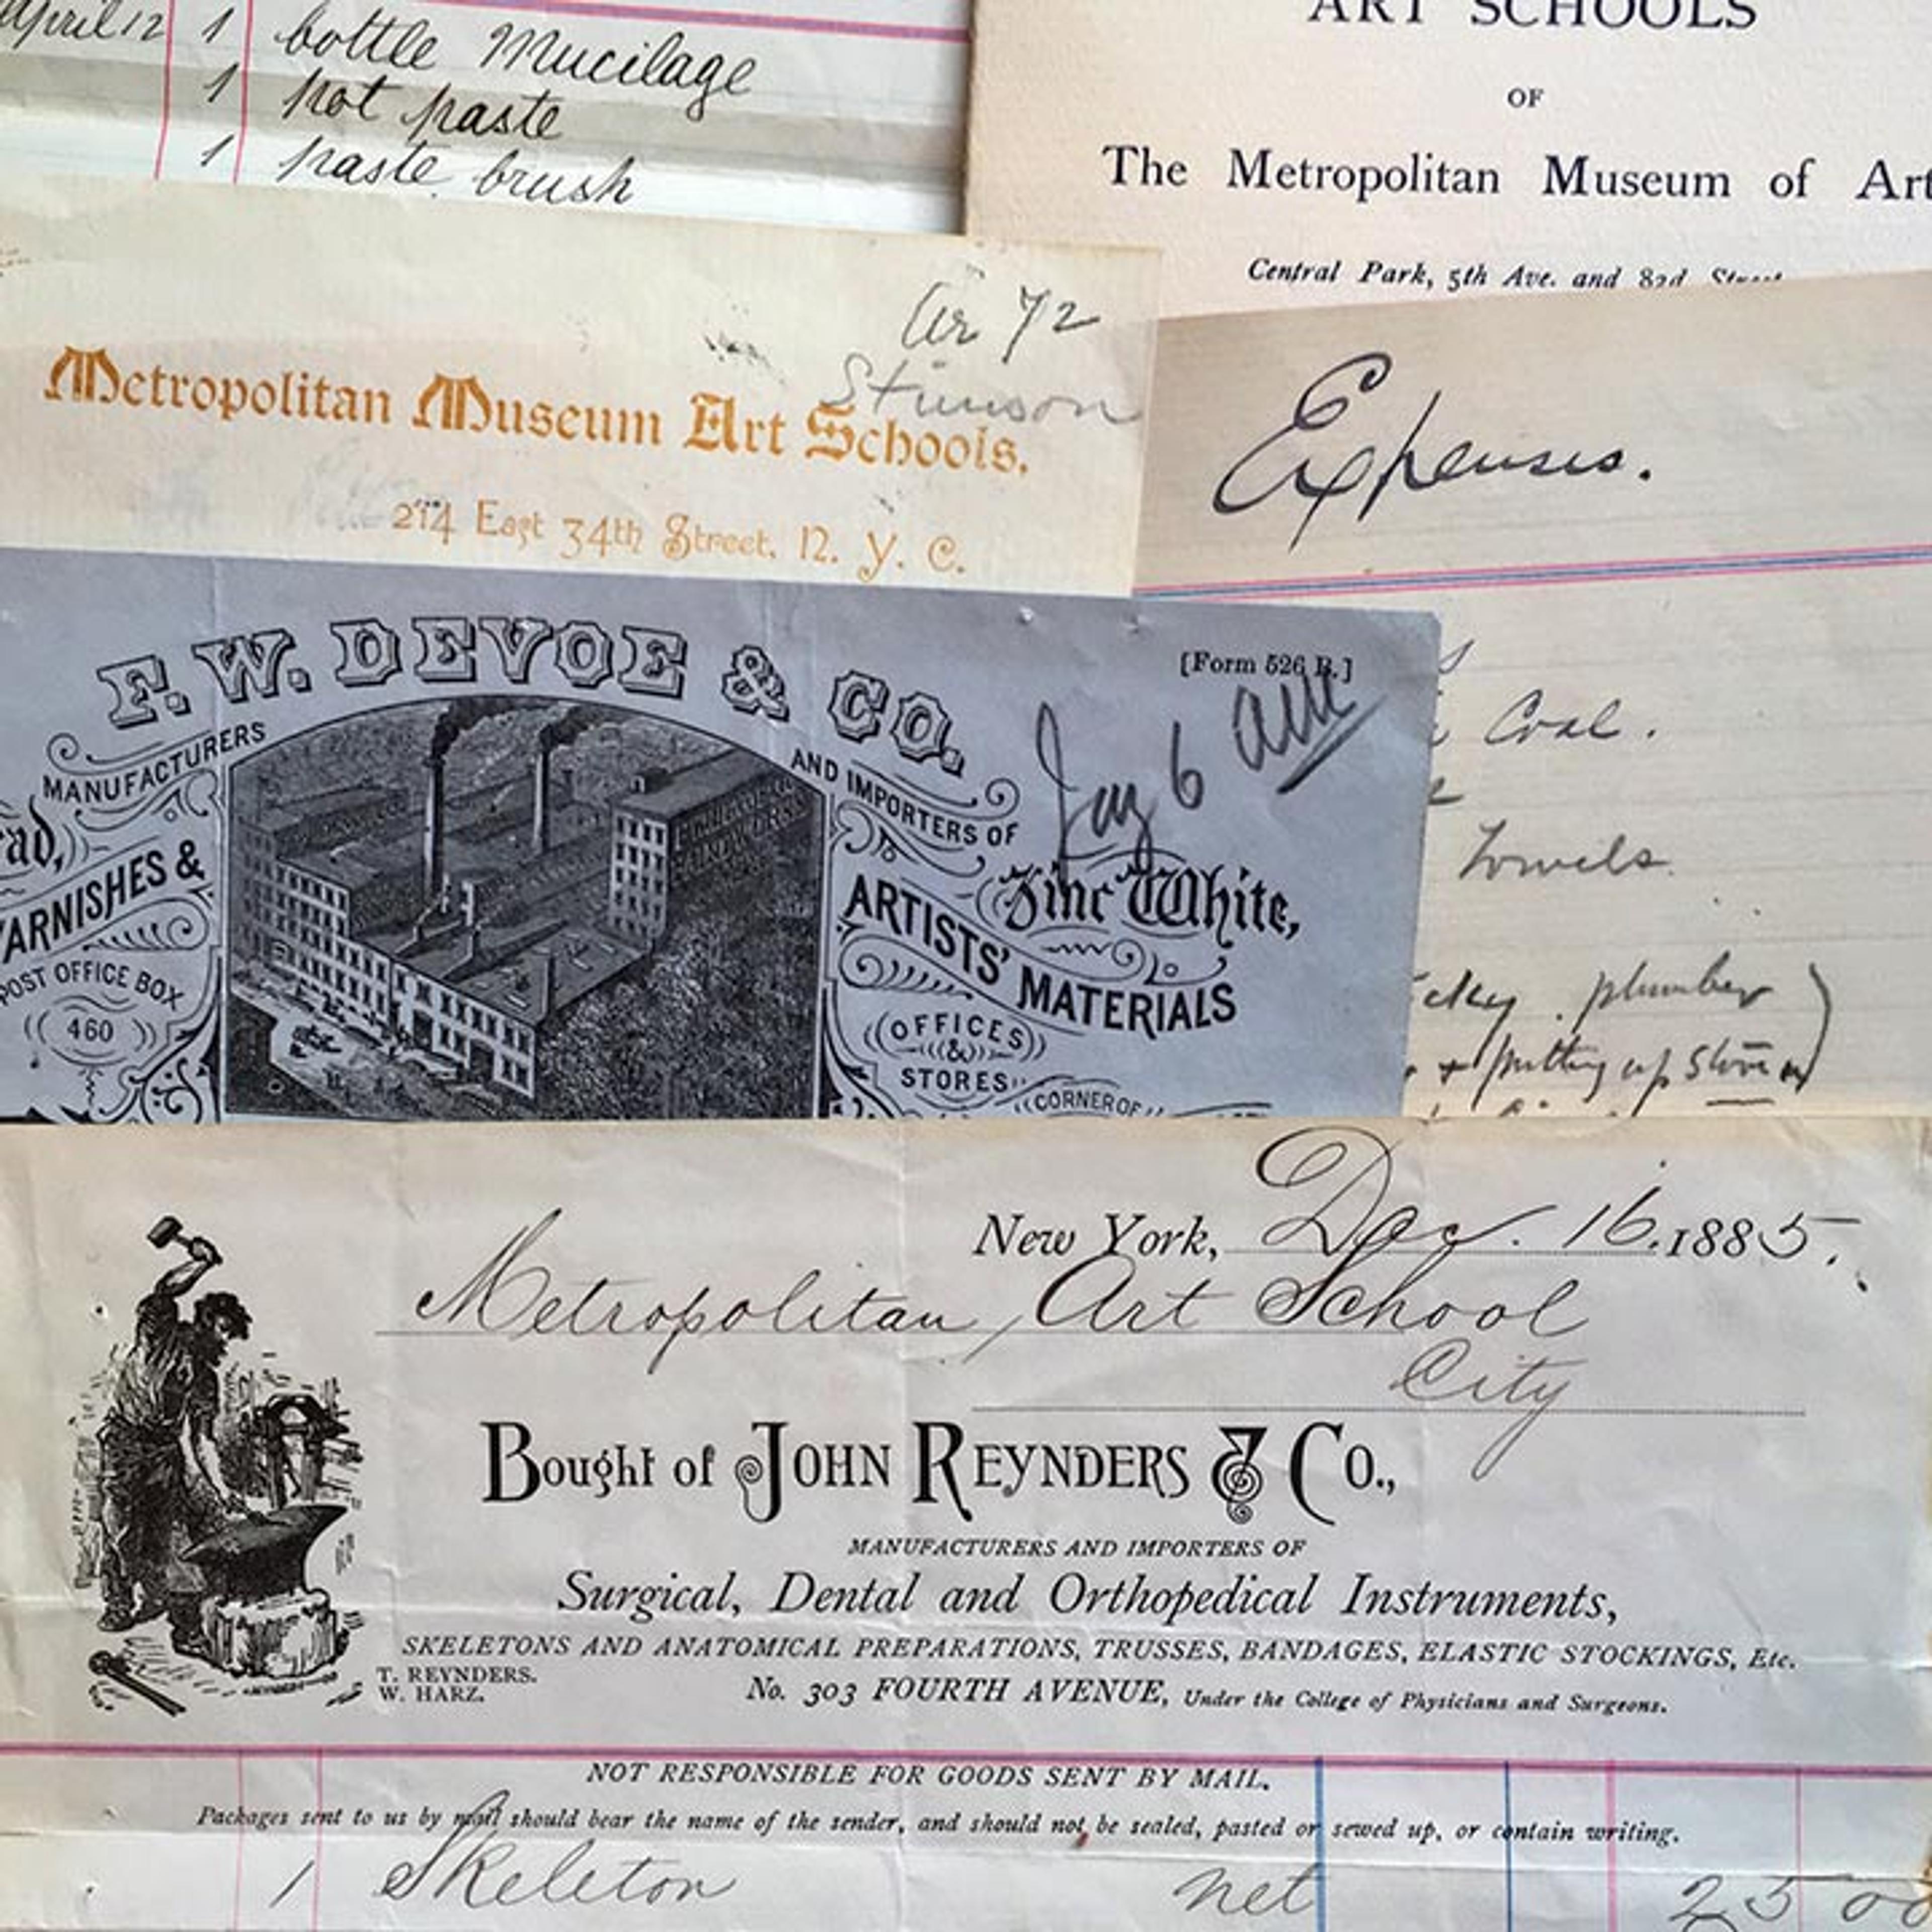 April 12 1 bottle Mucilage
1 pot paste
1 paste brush
ART SCHOOLS
OF
The Metropolitan Museum of Art
Central Park, 5th Ave. and 82d Street
72
Stimson
Metropolitan Museum Art Schools.
214 East 34th Street. N. Y. C.
Expenses.
Coal.
Towels.
plumber
+ putting up Stove
F. W. DEVOE & CO.
[Form 526 B.]
MANUFACTURERS
AND IMPORTERS OF
6
VARNISHES &
Zinc White,
ARTISTS' MATERIALS
POST OFFICE BOX
460
OFFICES
&
STORES
CORNER OF
New York, Dec. 16. 1885.
Metropolitan Art School
City
Bought of JOHN REYNDERS & Co.,
MANUFACTURERS AND IMPORTERS OF
Surgical, Dental and Orthopedical Instruments,
SKELETONS AND ANATOMICAL PREPARATIONS, TRUSSES, BANDAGES, ELASTIC STOCKINGS, Etc.
T. REYNDERS.
W. HARZ.
No. 303 FOURTH AVENUE, Under the College of Physicians and Surgeons.
NOT RESPONSIBLE FOR GOODS SENT BY MAIL.
Packages sent to us by mail should bear the name of the sender, and should not be sealed, pasted or sewed up, or contain writing.
1 Skeleton net 25 00